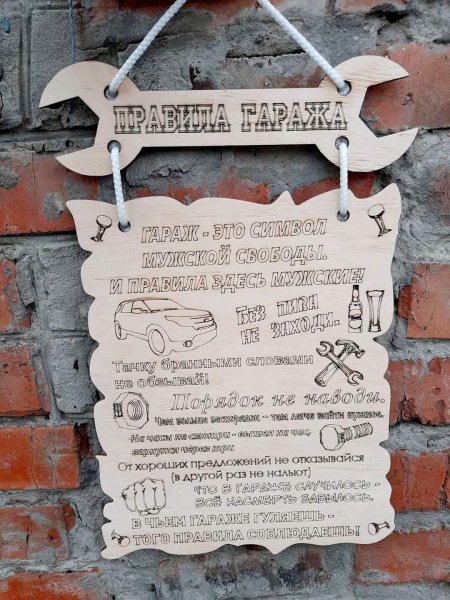 ПРАВИЛА ГАРАЖА
ГАРАЖ - ЭТО СИМВОЛ
МУЖСКОЙ СВОБОДЫ.
И ПРАВИЛА ЗДЕСЬ МУЖСКИЕ!
БЕЗ ПИВА
НЕ ЗАХОДИ.
Тачку бранными словами
не обзывай!
Порядок не наводи.
Чем больше беспорядок - тем легче найти нужное.
На часы не смотри - вышел на час,
вернулся через три
От хороших предложений не отказывайся
(в другой раз не нальют)
ЧТО В ГАРАЖЕ СЛУЧИЛОСЬ -
ВСЁ НАСМЕРТЬ ЗАБЫЛОСЬ.
В ЧЬЕМ ГАРАЖЕ ГУЛЯЕШЬ -
ТОГО ПРАВИЛА СОБЛЮДАЕШЬ!